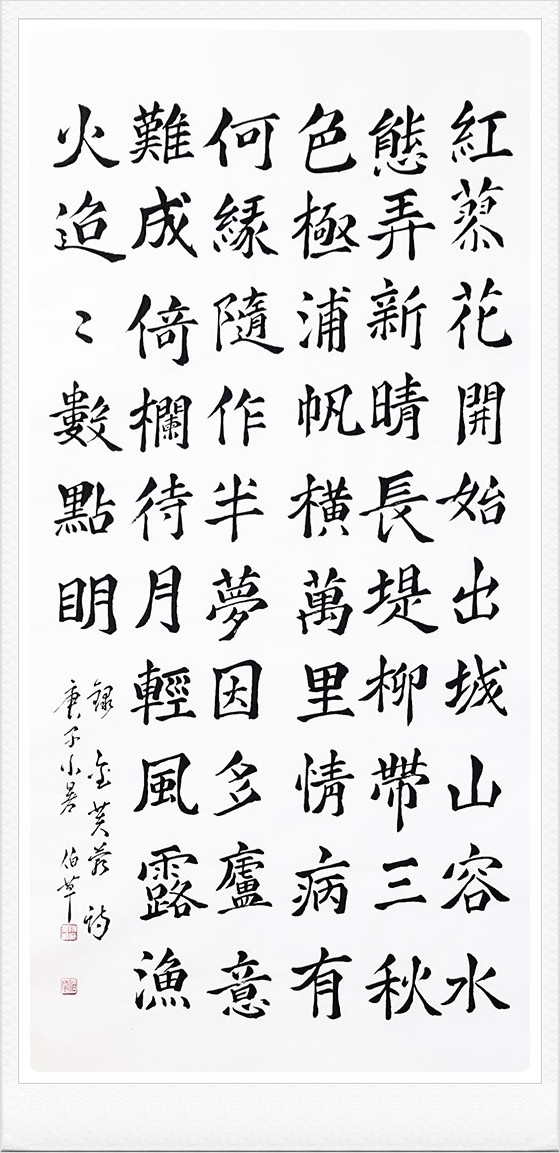 紅蓼花開始出城山容水
態弄新晴長堤柳帶三秋
色極浦帆横萬里情病有
何緣隨作半夢因多廬意
難成倚欄待月輕風露漁
火迨〻數點明
錄金芙蓉詩
庚子小暑伯華